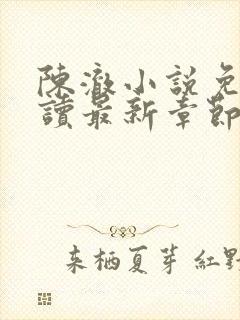 陳澈小說免
讀最新章節
来栖夏芽 紅野